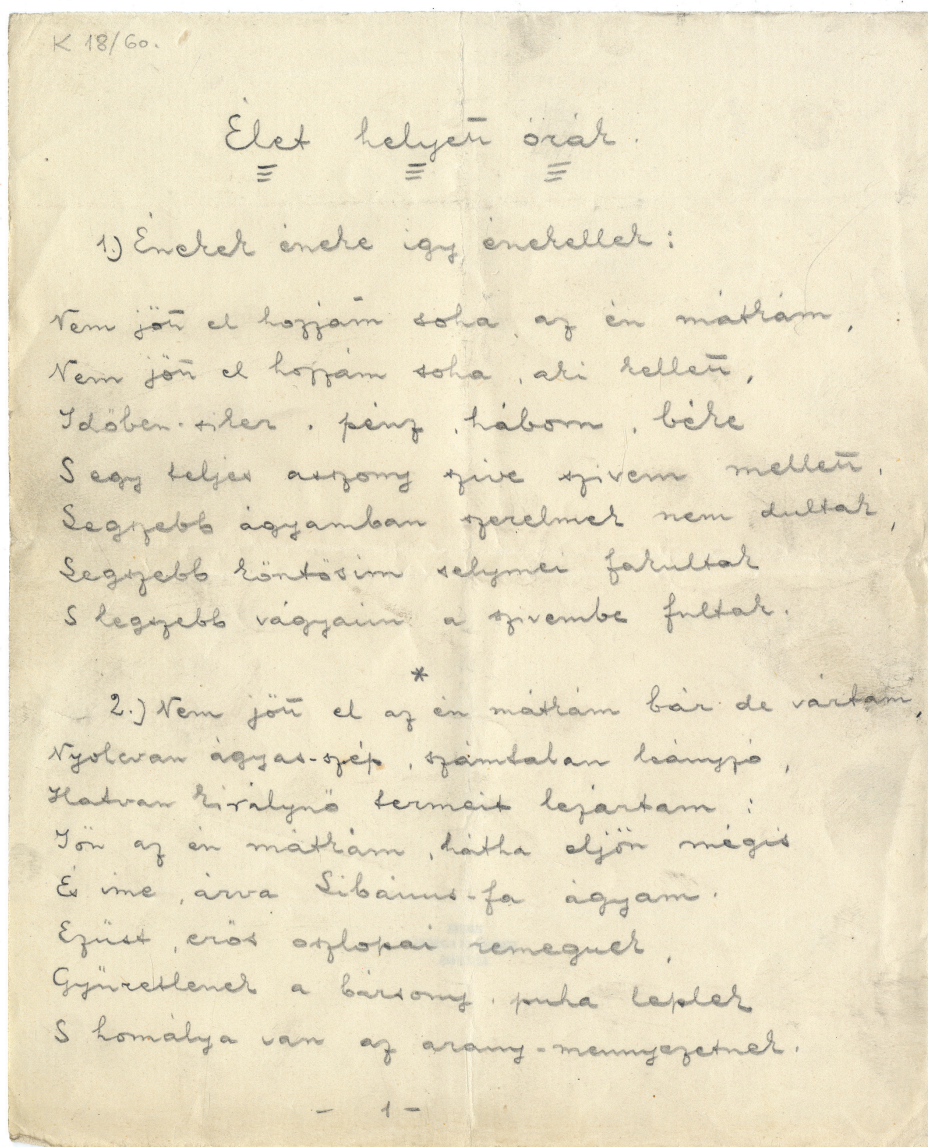 K 18/60.
Élet helyett órák.
1.) Énekek éneke igy énekellek:
Nem jött el hozzám soha az én mátkám,
Nem jött el hozzám soha, aki kellett,
Időben siker, pénz, háboru, béke
S egy teljes asszony szive szivem mellett.
Legszebb ágyamban szerelmek nem dultak,
Legszebb köntösim selymei fakultak
S legszebb vágyaim a szivembe fultak.
*
2.) Nem jött el az én mátkám bár de vártam,
Nyolcvan ágyas-szép, számtalan leányzó,
Hatvan királynő termeit lezártam:
Jön az én mátkám, hátha eljön mégis
És ime, árva Libánus-fa ágyam.
Ezüst, erős oszlopai remegnek,
Gyüretlenek a bársony, puha leplek
S homálya van az arany-mennyezetnek.
- 1 -